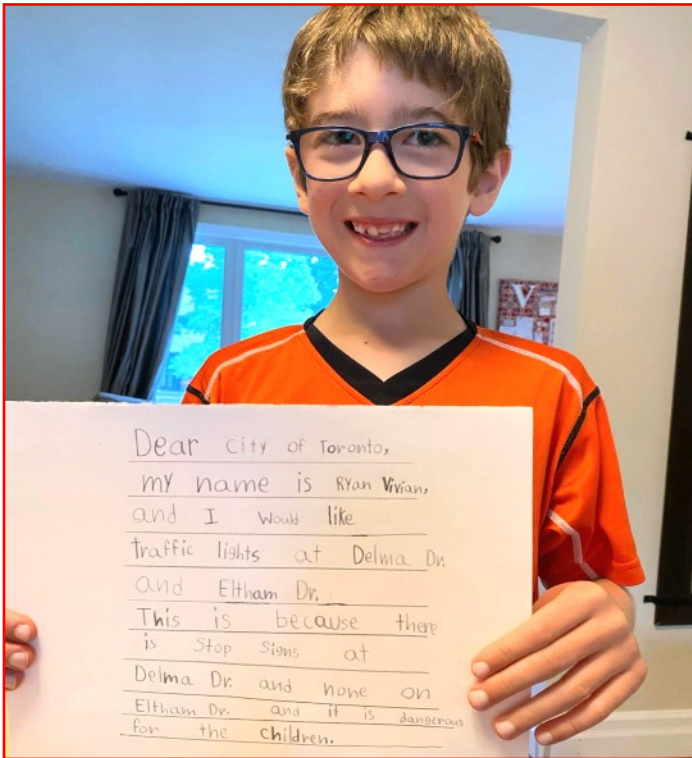 Dear city of Toronto,
my name is Ryan Vivian,
and I would like
traffic lights at Delma Dr.
and Eltham Dr.
This is because there
is Stop Signs at
Delma Dr. and none on
Eltham Dr. and it is dangerous
for the children.
V